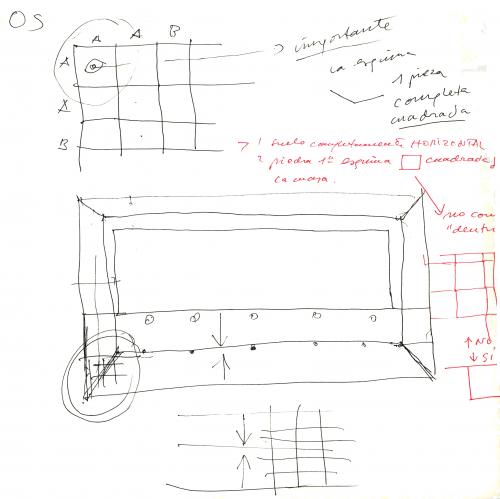 OS
A A B
A
A
B
→ importante
la esquina
1 pieza
completa
cuadrada
→ 1 Suelo completamente HORIZONTAL
2 piedra 1ª esquina □ cuadrada,
no con
"dentr
↑ NO,
↓ SI